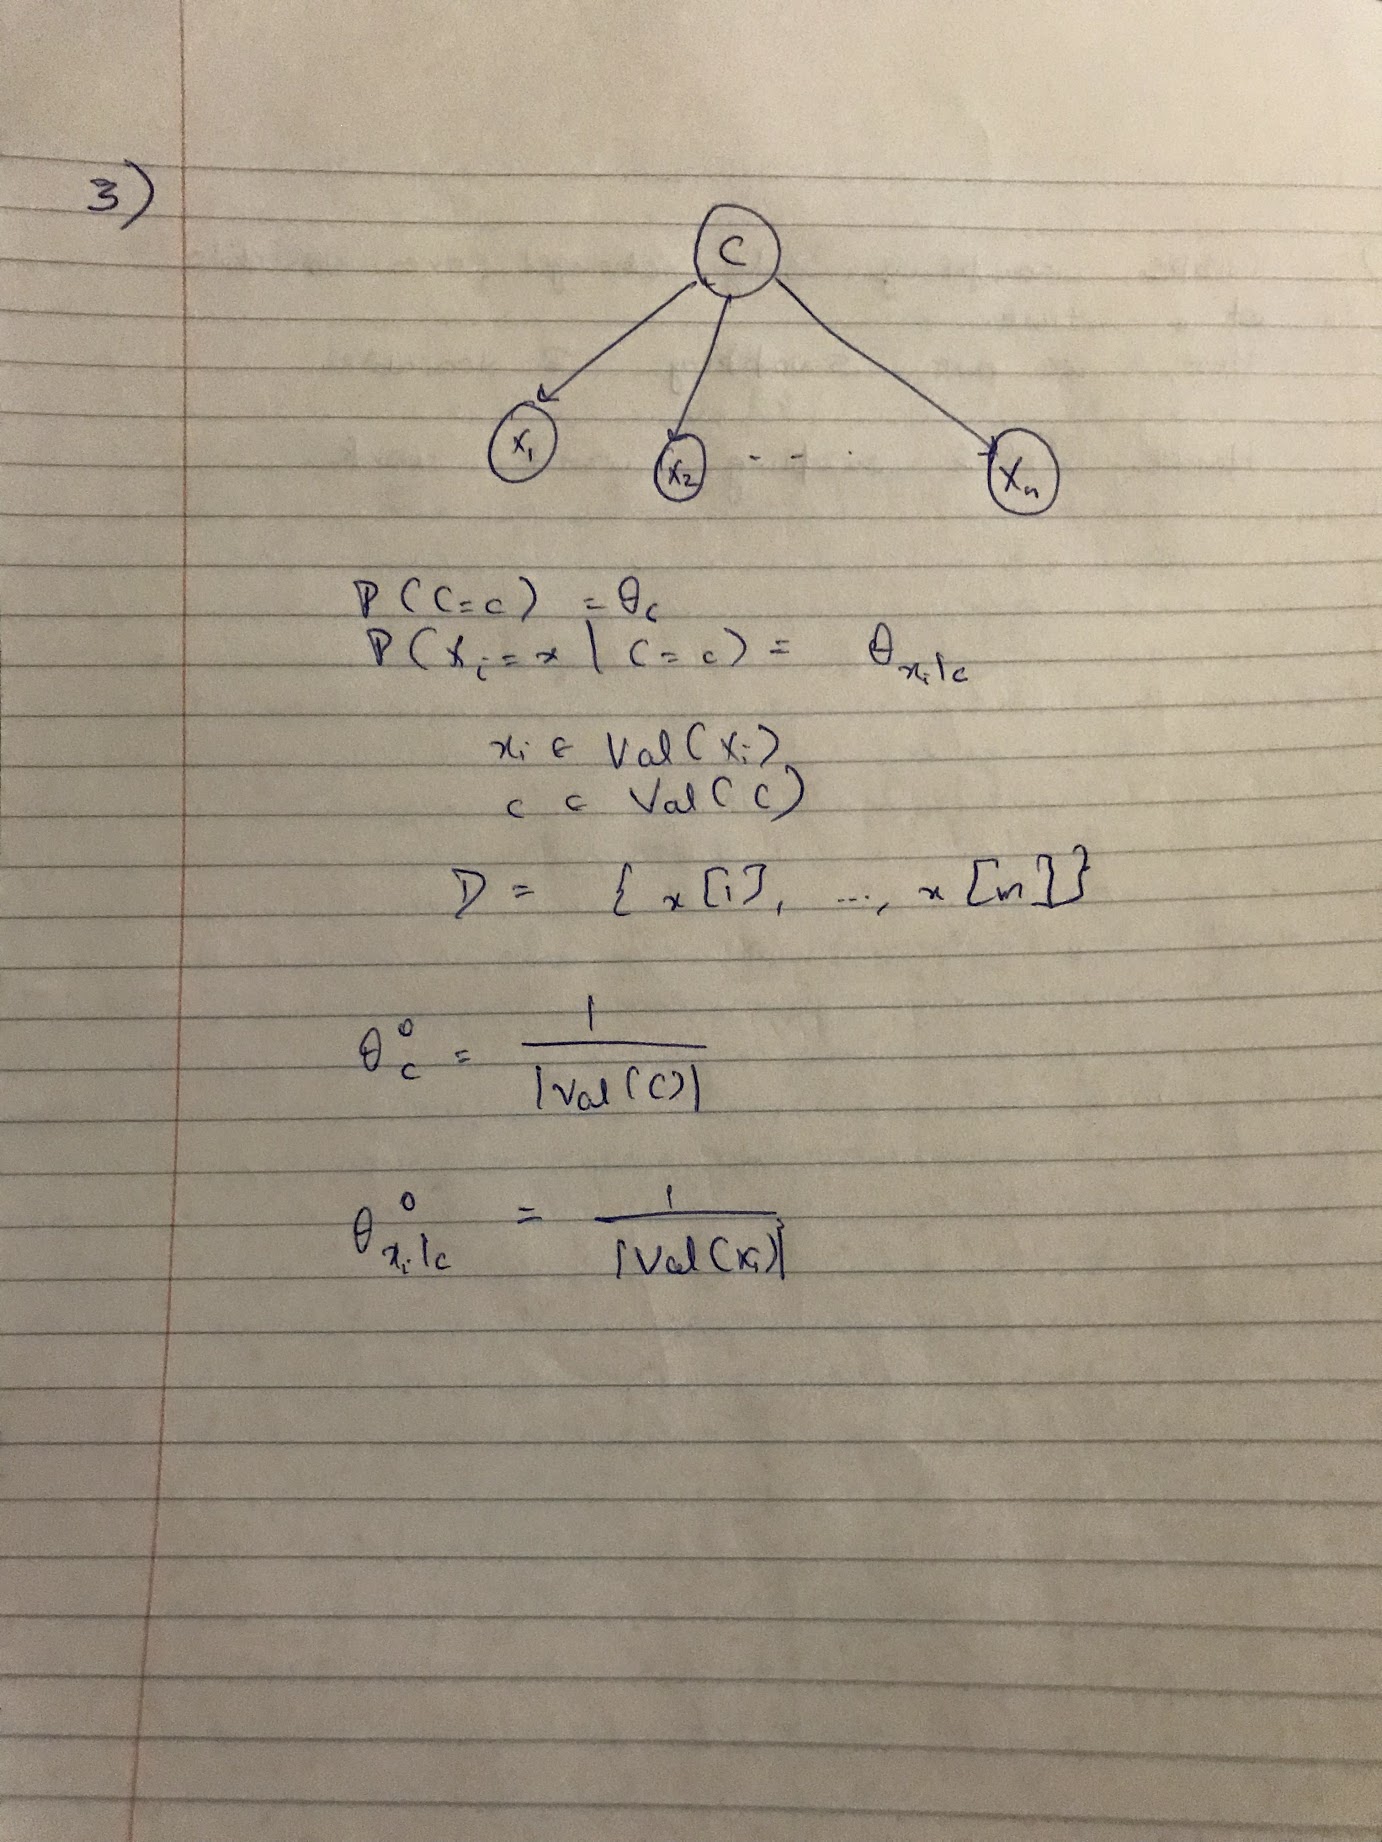 3)
C
X₁ X₂ - - . Xₙ
P(C=c) = θ_c
P(X_i=x | C=c) = θ_{x_i|c}
x_i ∈ Val(X_i)
c ∈ Val(C)
D = { x[i], ..., x[m]}
θ_c^0 = 1 / |Val(C)|
θ_{x_i|c}^0 = 1 / |Val(X_i)|